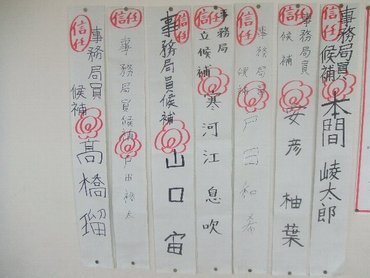 信任
事務局員候補
本間 崚太郎
信任
事務局員
候補
安彦 柚葉
信任
事務局員
候補
戸田 和希
信任
事務局
立候補
寒河江 息吹
信任
事務局員候補
山口 宙
信任
事務局員候補
戸田 裕太
信任
事務局員
候補
高橋 瑠